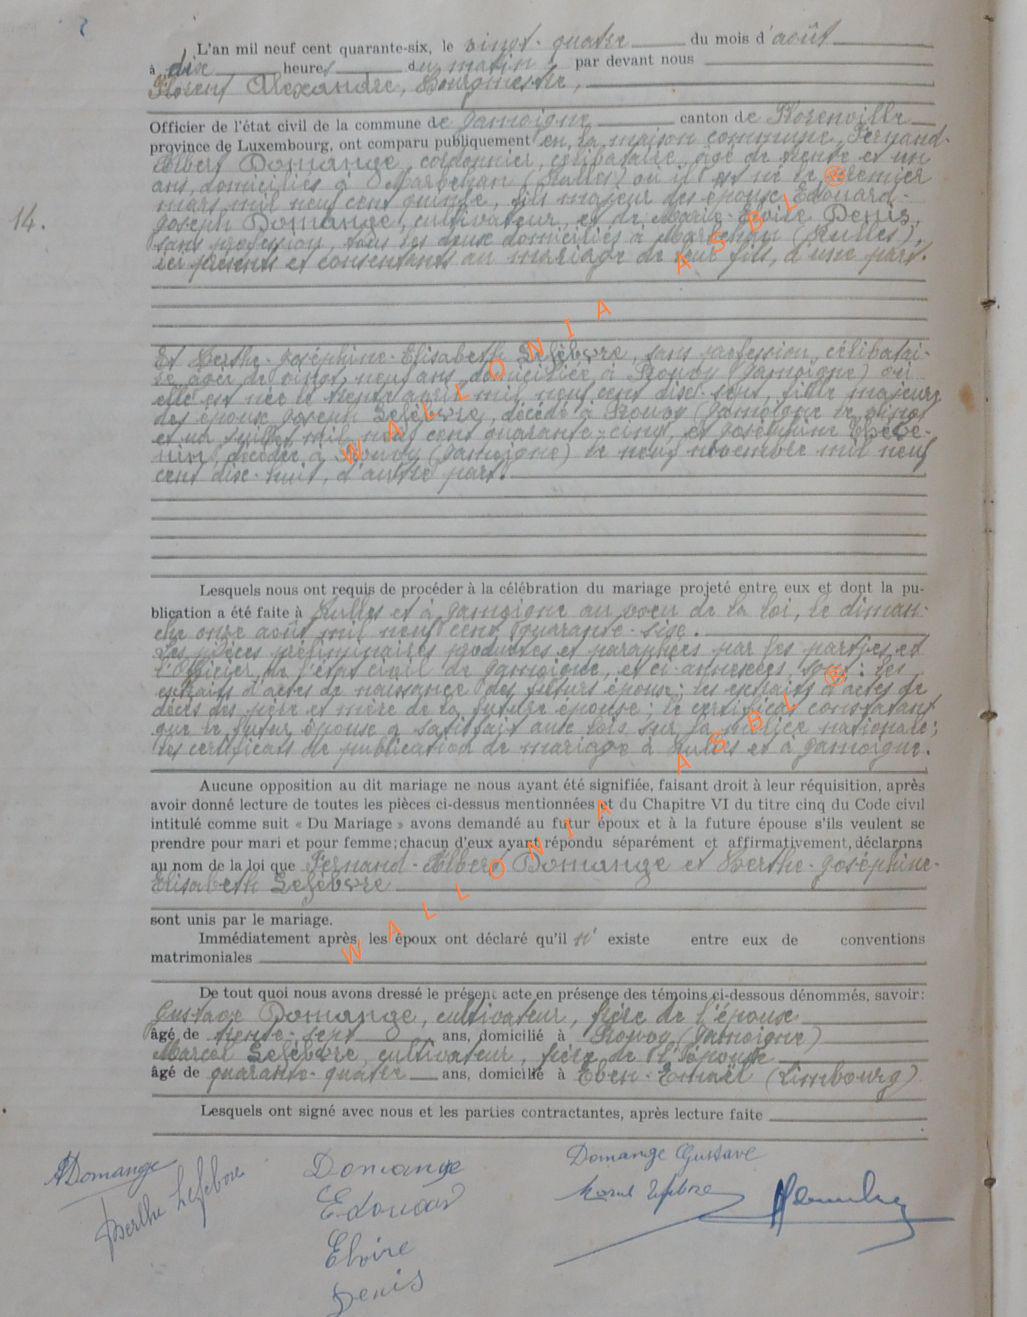 L'an mil neuf cent quarante-six, le vingt-quatre du mois d'août
à dix heures du matin, par devant nous
Florent Alexandre, Bourgmestre,
Officier de l'état civil de la commune de Jamoigne canton de Florenville
province de Luxembourg, ont comparu publiquement en la maison commune, Fernand-
Albert Domange, cordonnier, célibataire, âgé de trente et un
ans, domicilié à Marbehan (Rulles) où il est né le premier
mars mil neuf cent quinze, fils majeur des époux Edouard-
14.
Joseph Domange, cultivateur, et de Marie-Eloïse Denis,
sans profession, tous les deux domiciliés à Marbehan (Rulles),
ici présents et consentants au mariage de leur fils, d'une part.
Et Berthe-Joséphine-Elisabeth Lefèbvre, sans profession, célibatai-
re, âgée de vingt-neuf ans, domiciliée à Prouvy (Jamoigne) où
elle est née le trente avril mil neuf cent dix-sept, fille majeure
des époux Joseph Lefèbvre, décédé à Prouvy (Jamoigne) le vingt
et un juillet mil neuf cent quarante-cinq, et Joséphine
décédée à Prouvy (Jamoigne) le neuf novembre mil neuf
cent dix-huit, d'autre part.
Lesquels nous ont requis de procéder à la célébration du mariage projeté entre eux et dont la pu-
blication a été faite à Rulles et à Jamoigne au voeu de la loi, le diman-
che onze août mil neuf cent quarante-six.
Les pièces préliminaires produites et paraphées par les parties et
l'Officier de l'état civil de Jamoigne, et ci-annexées sont: les
extraits d'actes de naissance des futurs époux; les extraits d'actes de
décès des père et mère de la future épouse; le certificat constatant
que le futur époux a satisfait aux lois sur la milice nationale;
les certificats de publication de mariage à Rulles et à Jamoigne.
Aucune opposition au dit mariage ne nous ayant été signifiée, faisant droit à leur réquisition, après
avoir donné lecture de toutes les pièces ci-dessus mentionnées et du Chapitre VI du titre cinq du Code civil
intitulé comme suit « Du Mariage » avons demandé au futur époux et à la future épouse s'ils veulent se
prendre pour mari et pour femme; chacun d'eux ayant répondu séparément et affirmativement, déclarons
au nom de la loi que Fernand-Albert Domange et Berthe-Joséphine-
Elisabeth Lefèbvre
sont unis par le mariage.
Immédiatement après, les époux ont déclaré qu'il n'existe entre eux de conventions
matrimoniales
De tout quoi nous avons dressé le présent acte en présence des témoins ci-dessous dénommés, savoir:
Gustave Domange, cultivateur, frère de l'époux
âgé de trente-sept ans, domicilié à Prouvy (Jamoigne)
Marcel Lefèbvre, cultivateur, frère de l'épouse
âgé de quarante-quatre ans, domicilié à Eben-Emaël (Limbourg)
Lesquels ont signé avec nous et les parties contractantes, après lecture faite
Domange
Berthe Lefebvre
Domange
Edouard
Eloïse
Denis
Domange Gustave
Marcel Lefebvre
WALLONIA ASBL
WALLONIA ASBL